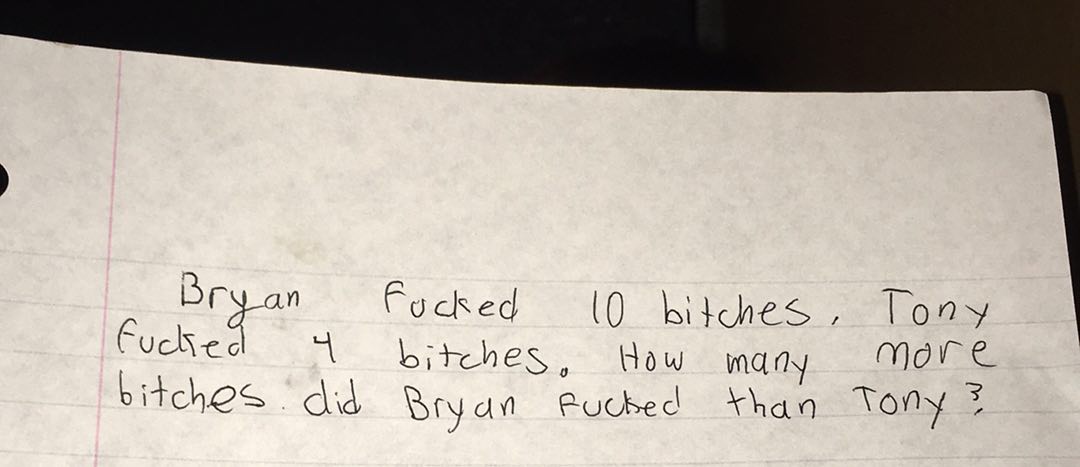 Bryan Fucked 10 bitches. Tony
fucked 4 bitches. How many more
bitches did Bryan Fucked than Tony?